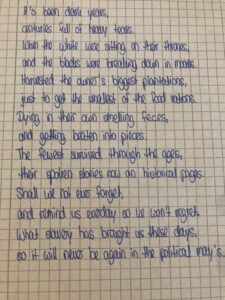 It's been dark years,
centuries full of heavy tears.
When the white were sitting on their thrones,
and the blacks were breaking down in moans.
Harvested the owner's biggest plantations,
just to get the smallest of the food rations.
Dying in their own smelling feces,
and getting beaten into pieces.
The fewest survived through the ages,
their spoken stories now on historical pages.
Shall we not ever forget,
and remind us everyday so we won't regret,
What slavery has brought us these days,
so it will never be again in the political may's.